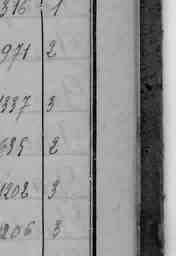 316 1
971 2
1337 3
695 2
1202 3
1206 3